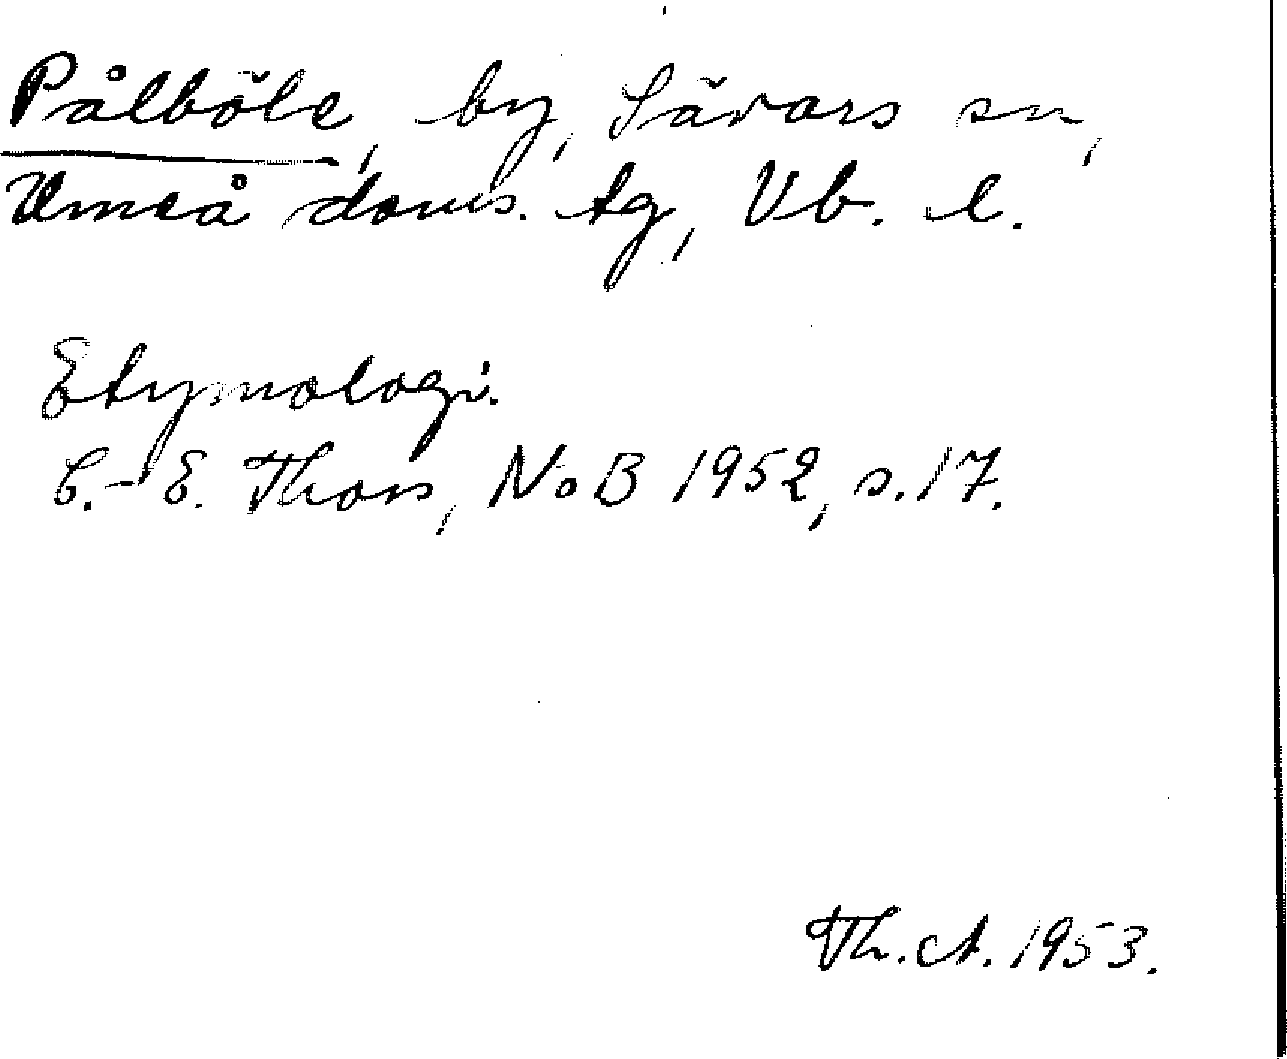 Pålböle, by, Sävars sn,
Umeå doms. tg, Vb. l.
Etymologi.
C.-E. Thors, NoB 1952, s. 17.
Th. A. 1953.